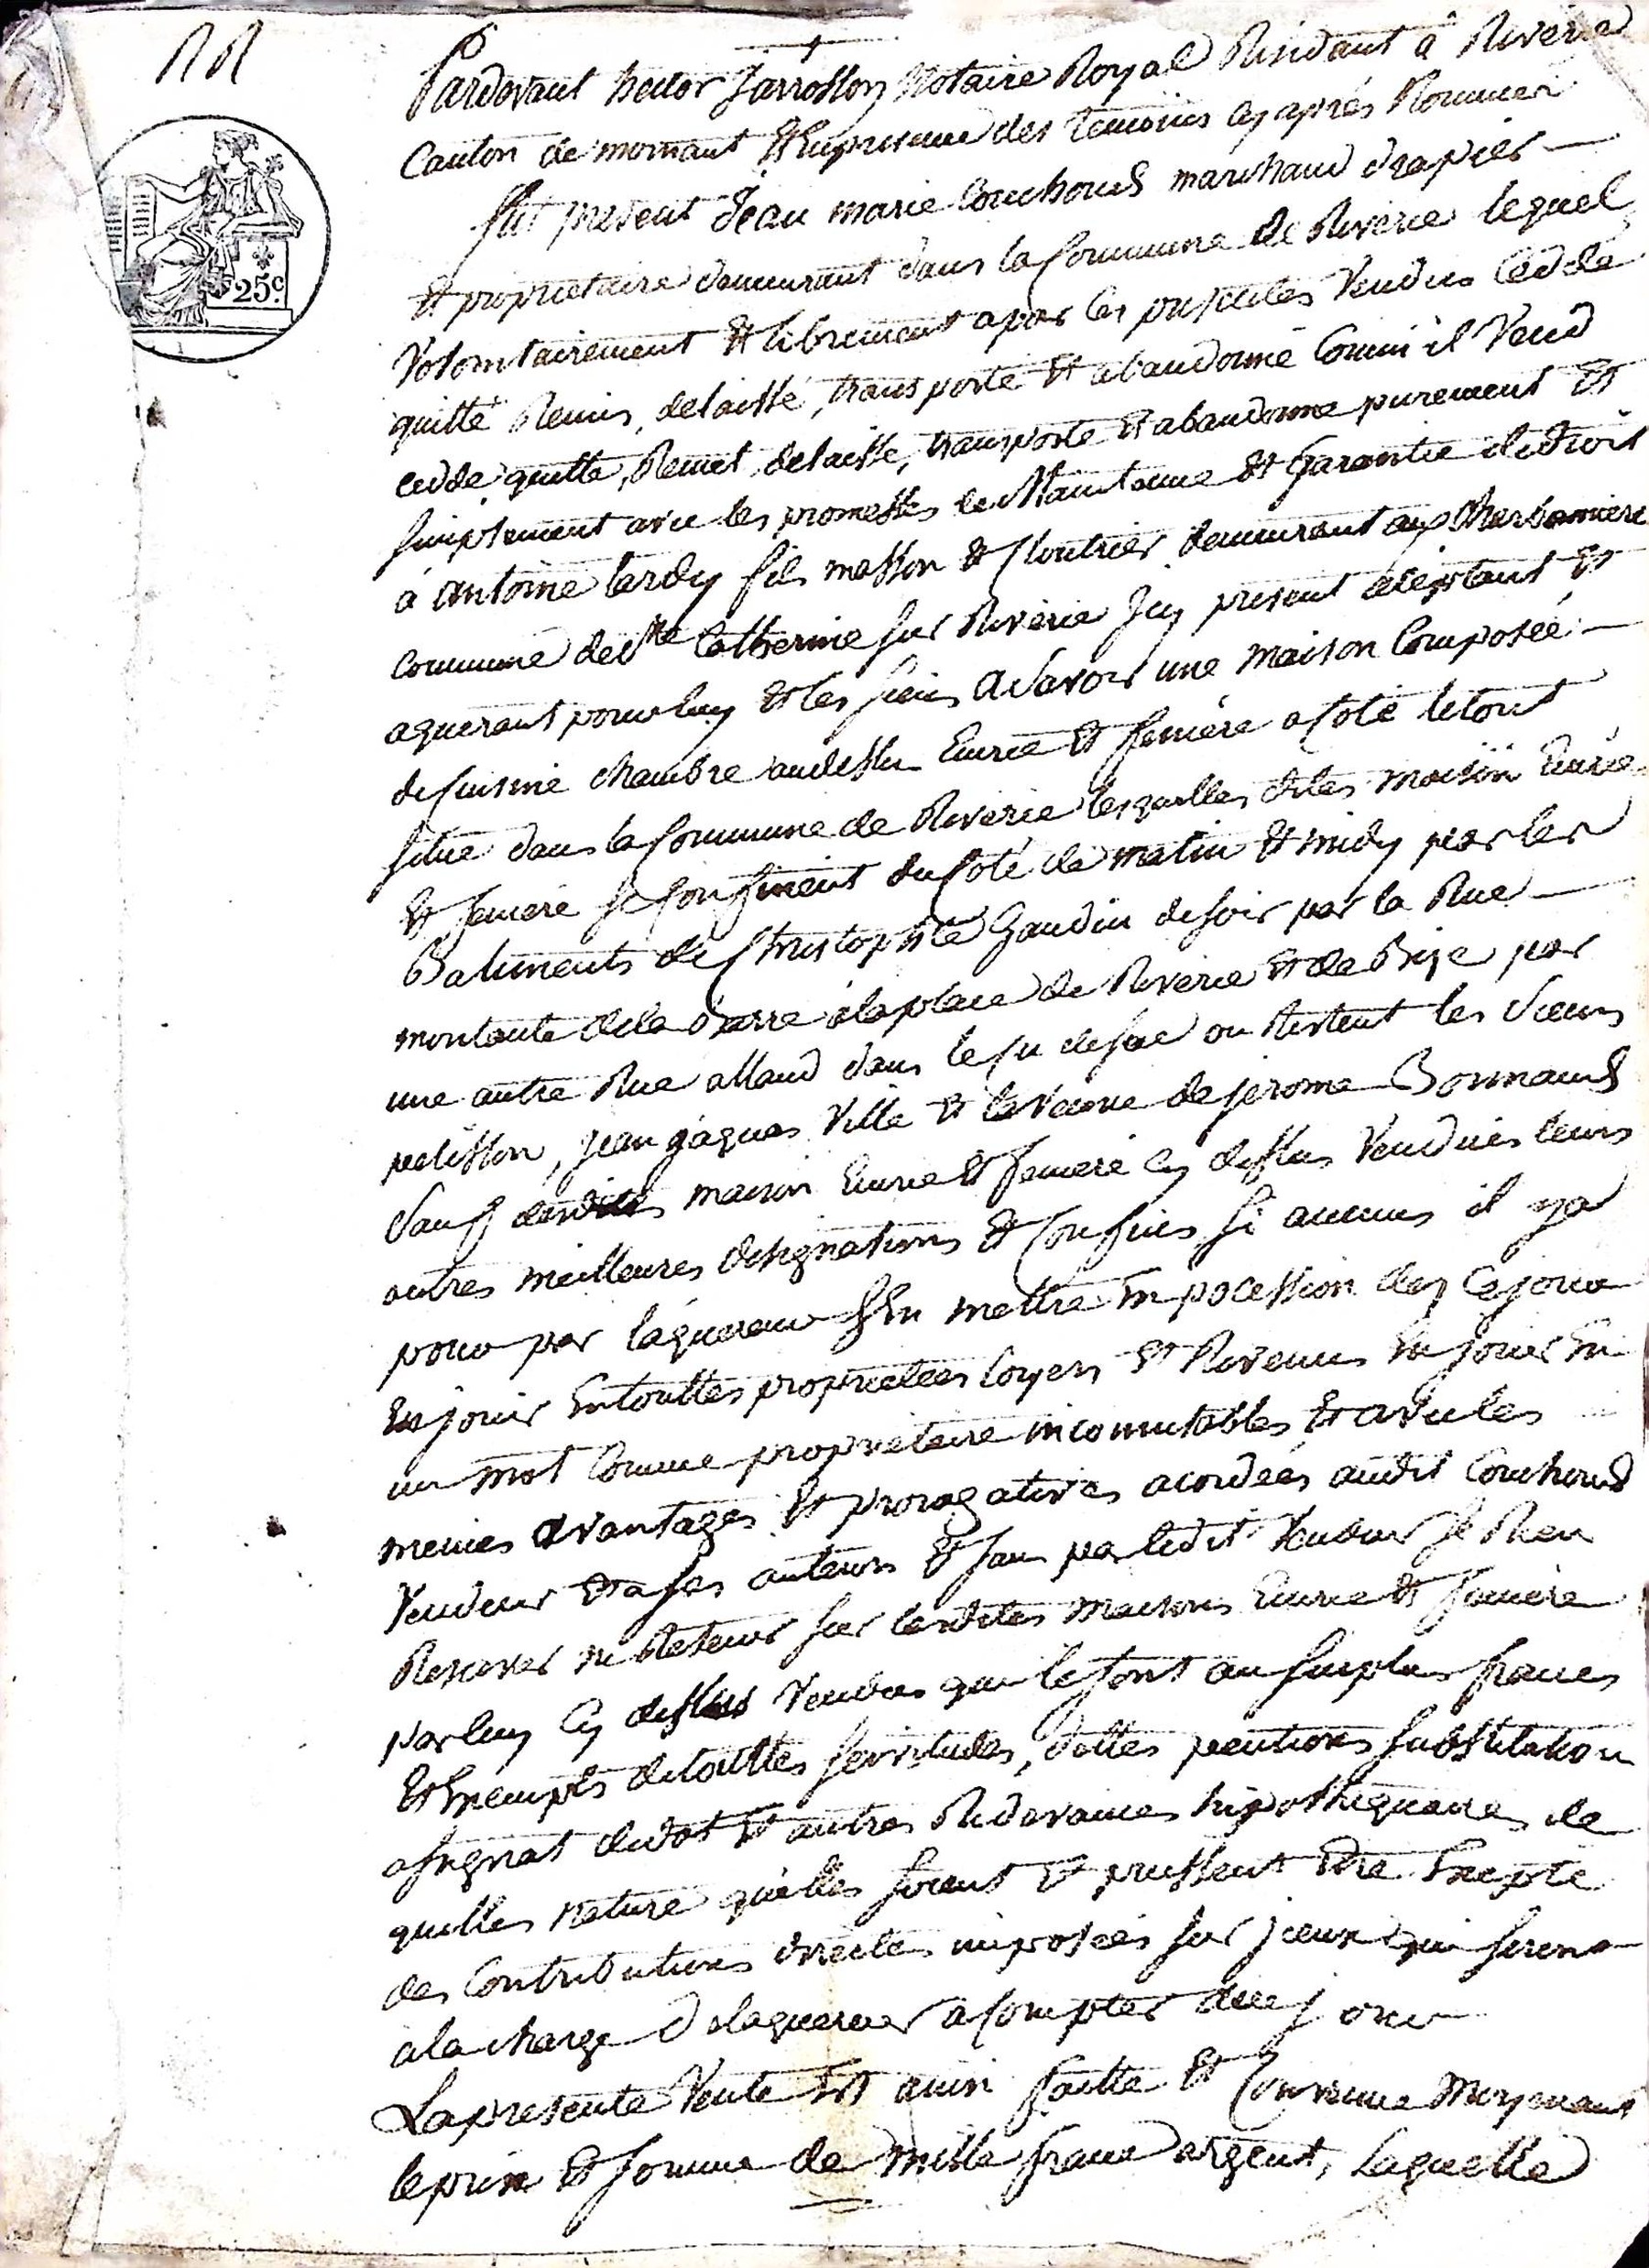 Pardevant hector Jarrosson Notaire Royal Residant à Riverie
Canton de mornant & En presence des temoins cy après Nommés
fut present Jean marie Couchoud marchand drapier
& proprietaire demeurant dans la Commune de Riverie lequel
Volontairement & librement a par les presentes Vendu Cedde
quitté Remis, delaissé, transporté & abandonné Comm'il Vend
cedde quitte, Remet, delaisse, transporte & abandonne purement &
simplement avec les promesses de Maintenue & Garantie de droit
à antoine tardy fils masson & cloutrier demeurant aux Charbonniere
commune de Ste Catherine sur Riverie Icy present acceptant &
aquerant pour luy & les siens Asavoir une maison Composée
de Cuisine chambre audessu Ecurie & feniere a Coté letout
situé dans la Commune de Riverie lesquelles dites maison Ecurie
& feniere se Confinent du Coté de matin & midy par les
Batiments de Christophe Gaudin de soir par la Rue
montante dela barre àla place de Riverie & de Bize par
une autre Rue alland dans le Cu de sac ou Restent les Sieurs
pelisson, Jean jâques Ville & la Veuve de jerome Bonnand
Sauf desdites maison Ecurie & feniere cy dessus Venduës leurs
autres meilleures designations & Confins si aucuns il ya
pour par l'aquereur S'En mettre En pocession dez Cejour
En jouir En touttes proprietées loyers & Revenus En jouir En
un mot Comme proprietaire incomutables & avec les
memes avantages & prorogatives acordées audit Couchoud
Vendeur & a ses auteurs & sans par ledit Vendeur se Rien
Reserver ni Retenir sur lesdites maisons Ecurie & feniere
par luy Cy dessus Vendues que le sont au surplus francs
& Exempts de touttes servitudes, dettes pentions substitution
assignat de dot & autres Redevances hipothequaires de
quelles nature qu'elles soient & puissent Etre Excepté
des Contributions directes imposées sur jceux qui seront
ala charge delaquereur a Compter dece jour
La presente Vente Est ainsi faitte & Convenue Moyenant
le prix & somme de mille franc argent, Laquelle
25c.